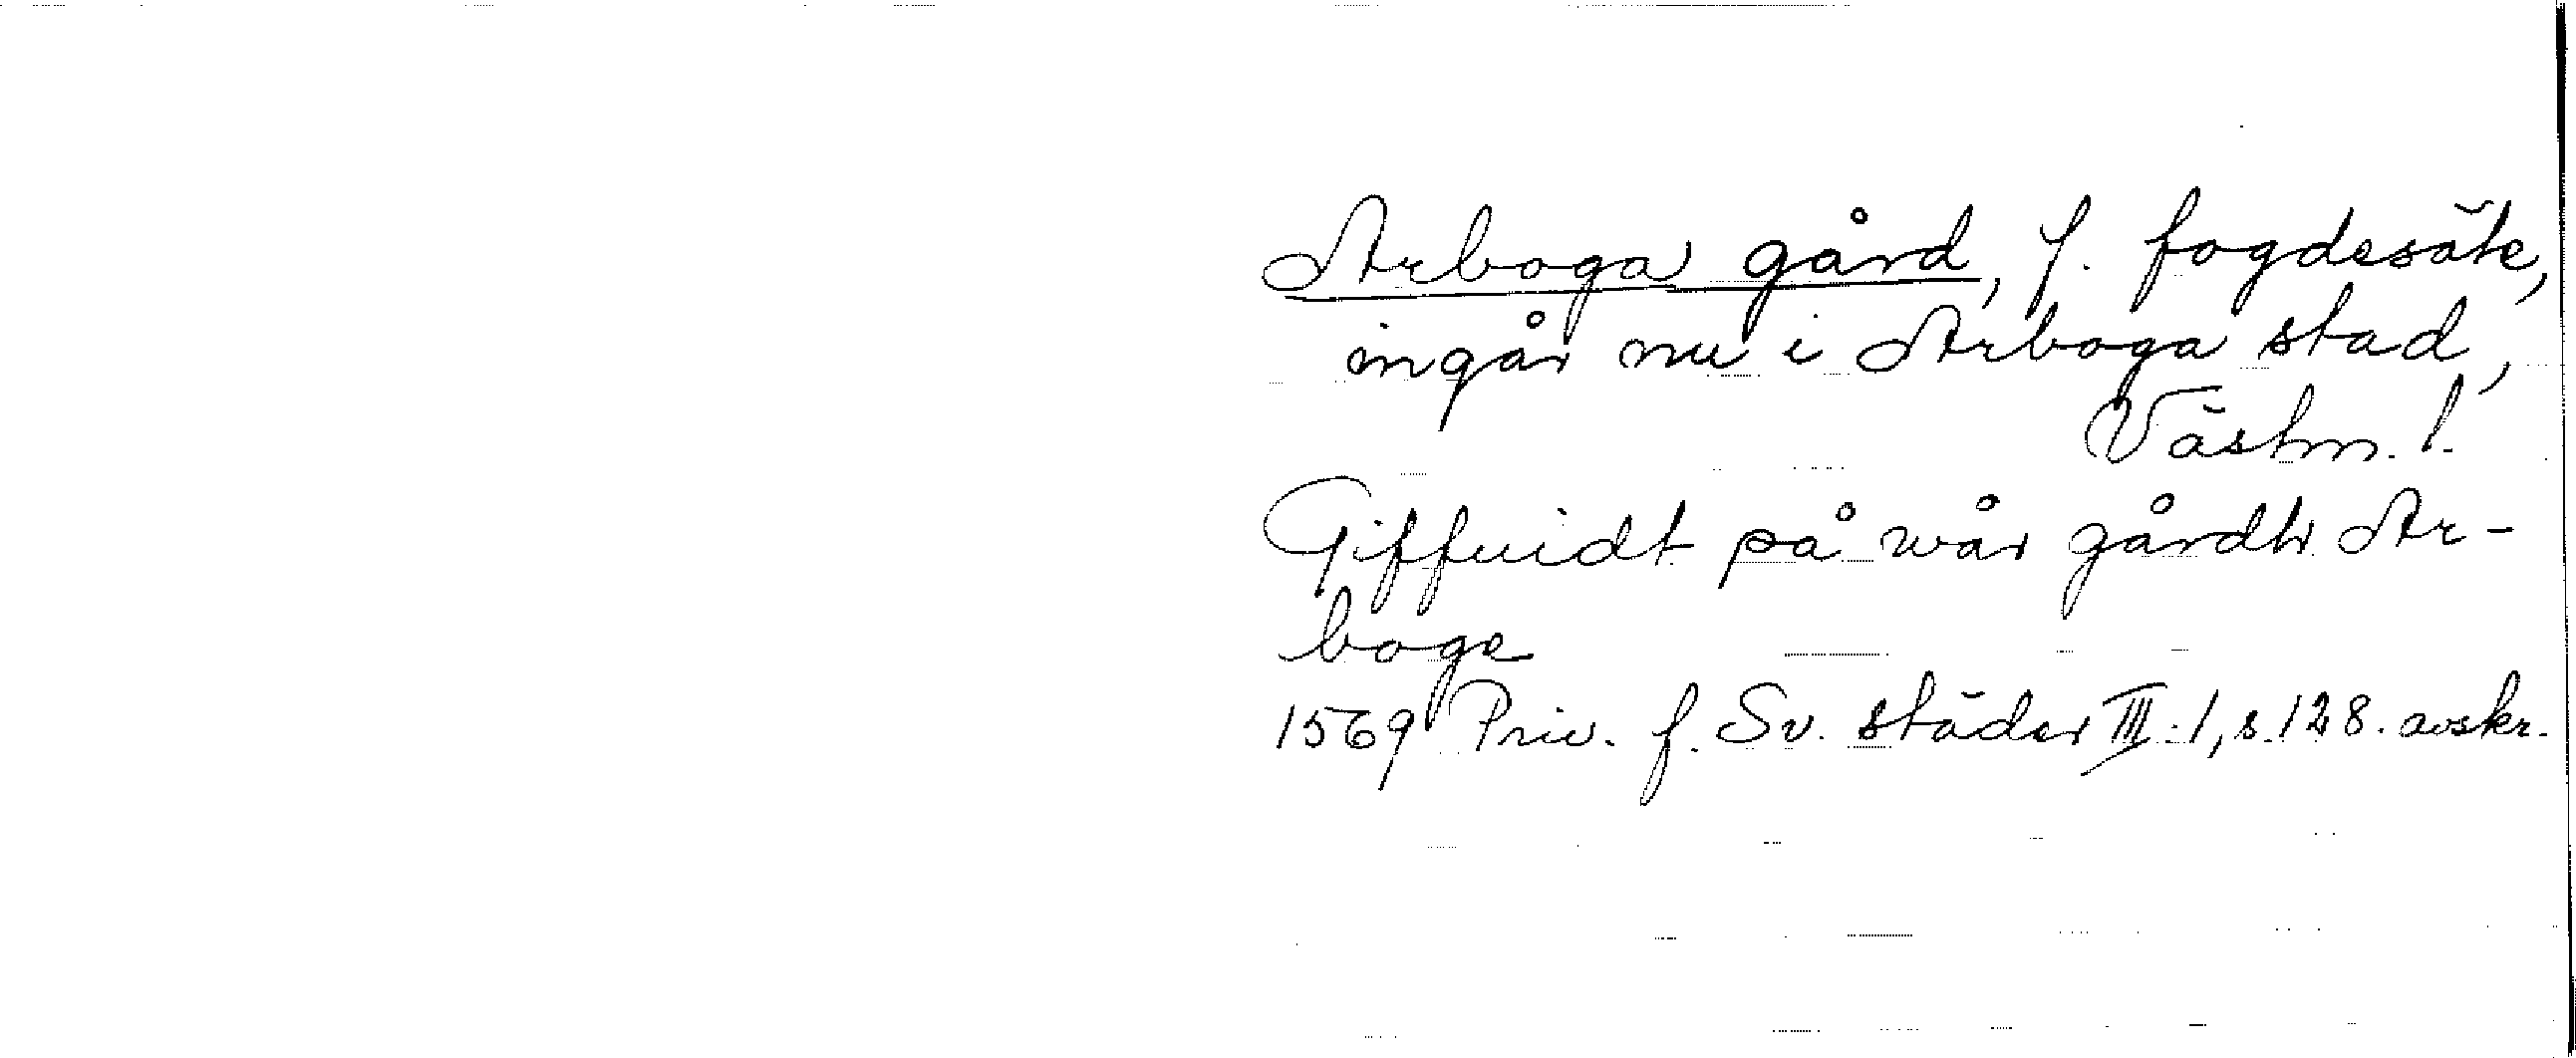 Arboga gård, f. fogdesäte,
ingår nu i Arboga stad,
Västm. l.
Giffuidt på wår gårdh Ar-
boge
1569 Priv. f. Sv. städer III:1, s. 128. avskr.